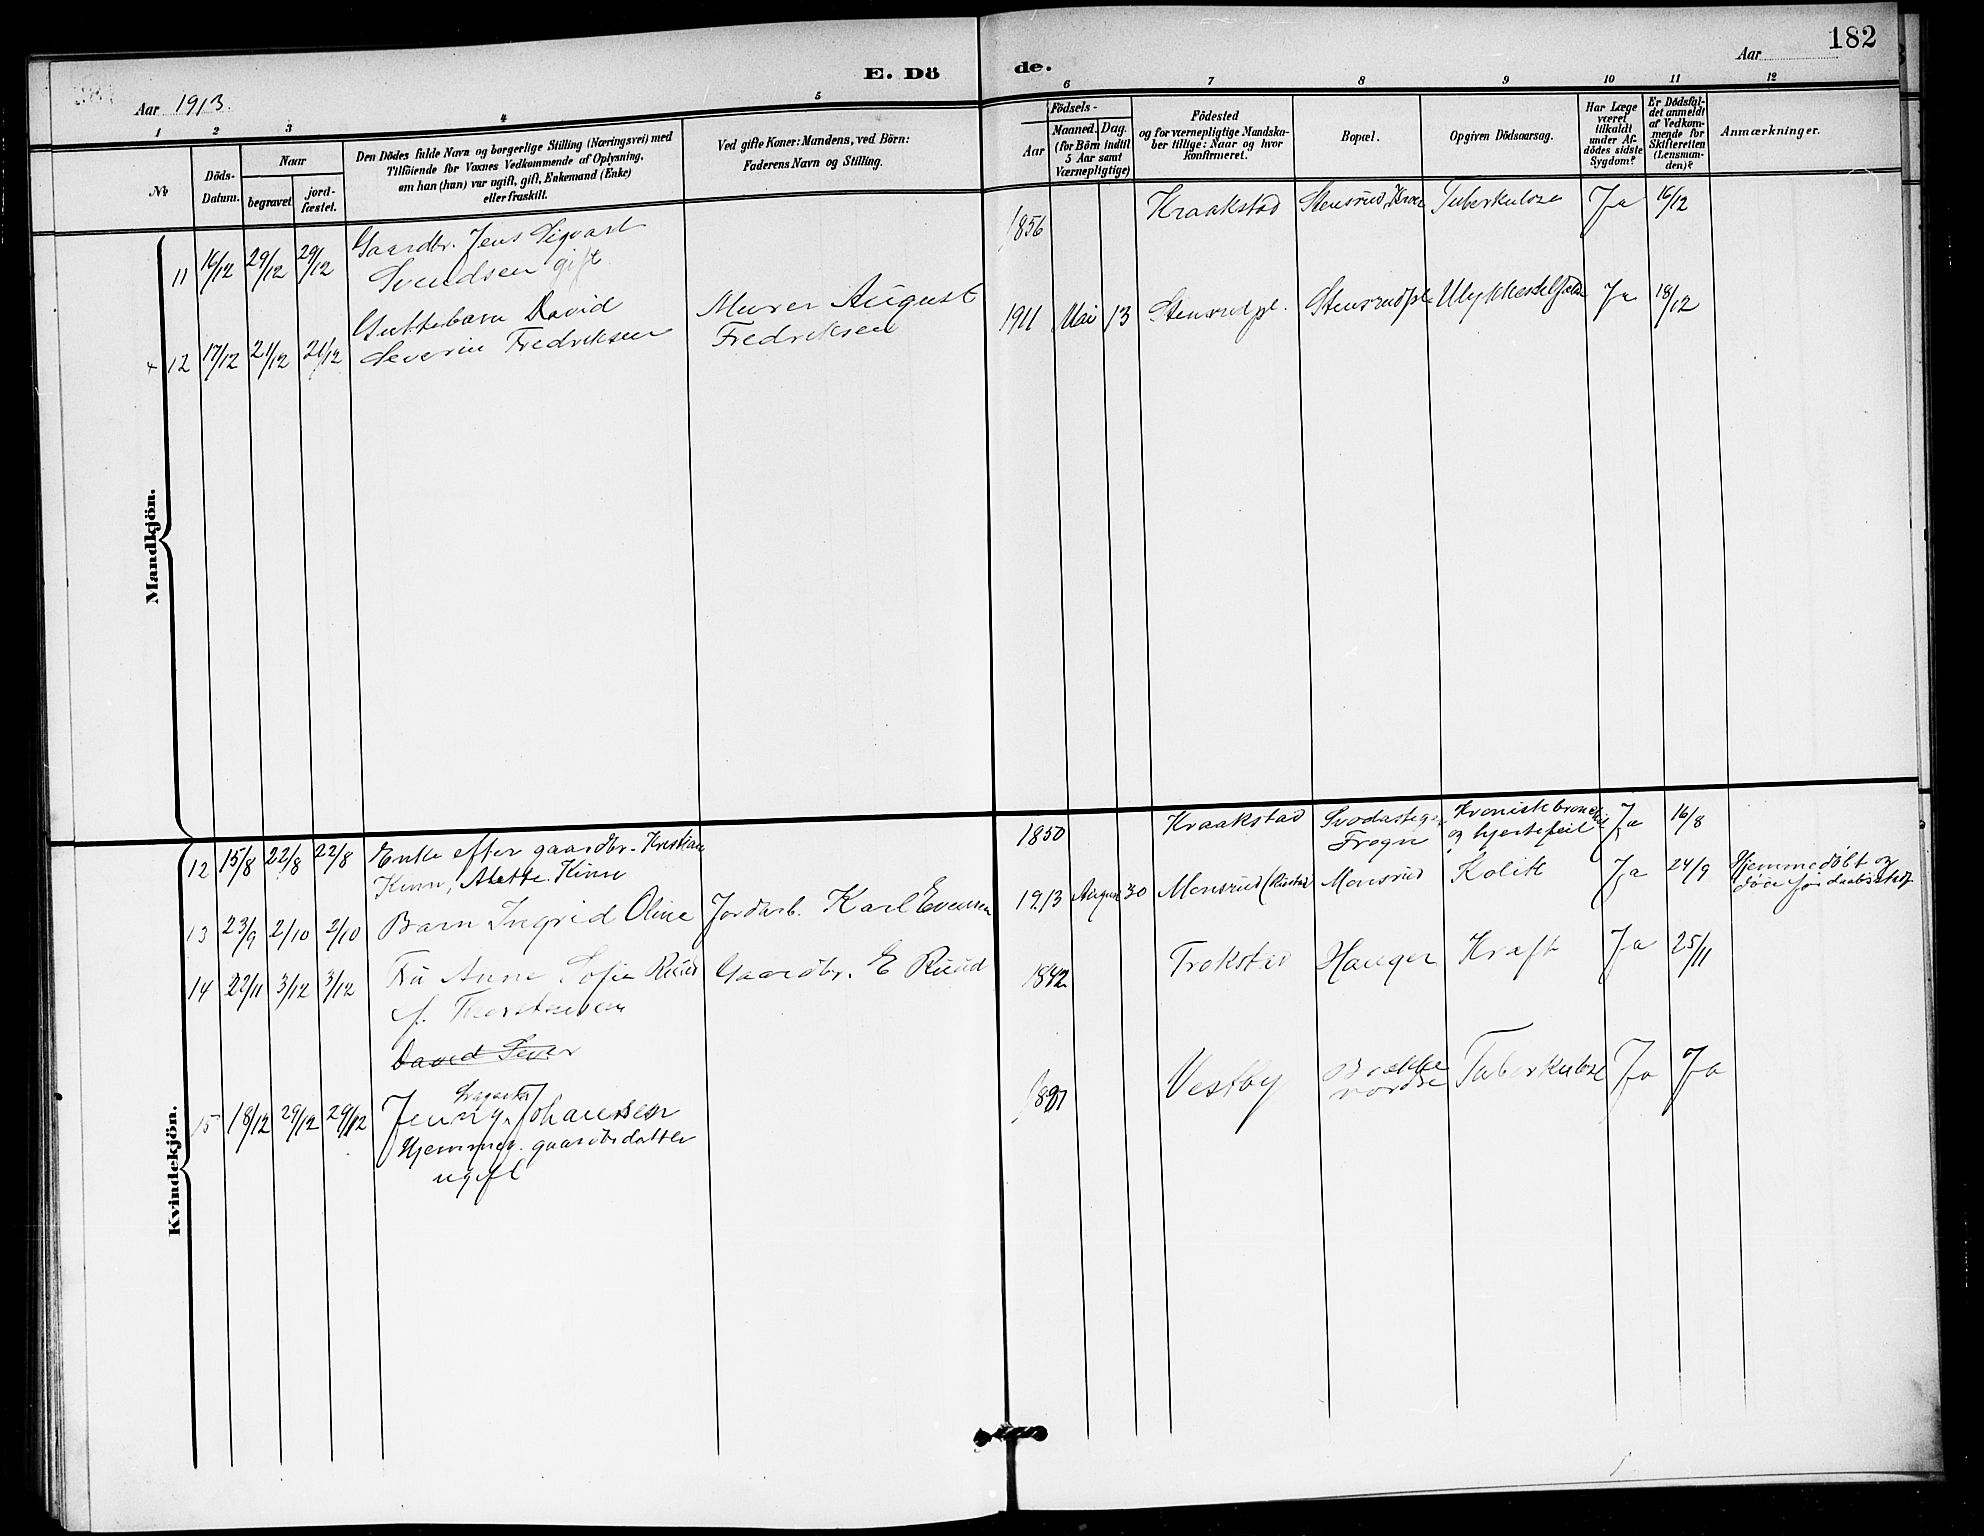 182
E. Döde.
Aar 1913.
Aar
1 2 3 4 5 6 7 8 9 10 11 12
No
Döds-Datum.
Naar
begravet.
jord-fæstet.
Den Dödes fulde Navn og borgerlige Stilling (Næringsvei) med
Tilföiende for Voxnes Vedkommende af Oplysning,
om han (hun) var ugift, gift, Enkemand (Enke)
eller fraskilt.
Ved gifte Koner: Mandens, ved Börn:
Faderens Navn og Stilling.
Födsels-
Aar
Maaned. Dag.
(for Börn indtil
5 Aar samt
Værnepligtige)
Födested
og for værnepligtige Mandska-
ber tillige: Naar og hvor
konfirmeret.
Bopæl.
Opgiven Dödsaarsag.
Har Læge
været
tilkaldt
under Af-
dödes sidste
Sygdom?
Er Dödsfal-
det anmeldt
af Vedkom-
mende for
Skifteretten
(Lensman-
den)?
Anmærkninger.
Mandkjön.
11 16/12 29/12 29/12 Gaardbr. Jens Sigvart
Svendsen gift
1856 Kraakstad Stensrud, Tuberkulose Ja 16/12
12 17/12 21/12 21/12 Guttebarn David
Severin Fredriksen
Murer August
Fredriksen
1911 Mai 13 Stensrudpl. Stensrudpl Ulykkestilfælde Ja 18/12
Kvindekjön.
12 15/8 22/8 22/8 Enke efter gaardbr. Kristian
Kinn, Alette Kinn
1850 Kraakstad
Frogn
og hjertefeil Ja 16/8
13 23/9 2/10 2/10 Barn Ingrid Oline Jordarb. Karl Evensen
1913 August 30 Monsrud Monsrud Kolik Ja 24/9 Hjemmedöbt og
14 22/11 3/12 3/12 Fru Anne Sofie Ruud Gaardbr. E Ruud
f. Thorstensen
1842 Trøkstad Hauger Kræft Ja 25/11
David Sever
15 18/12 29/12 29/12 Jenny Johansen
Hjemmev. gaardbr datter
ugift
1891 Vestby Brække
nordre
Tuberkulose Ja Ja